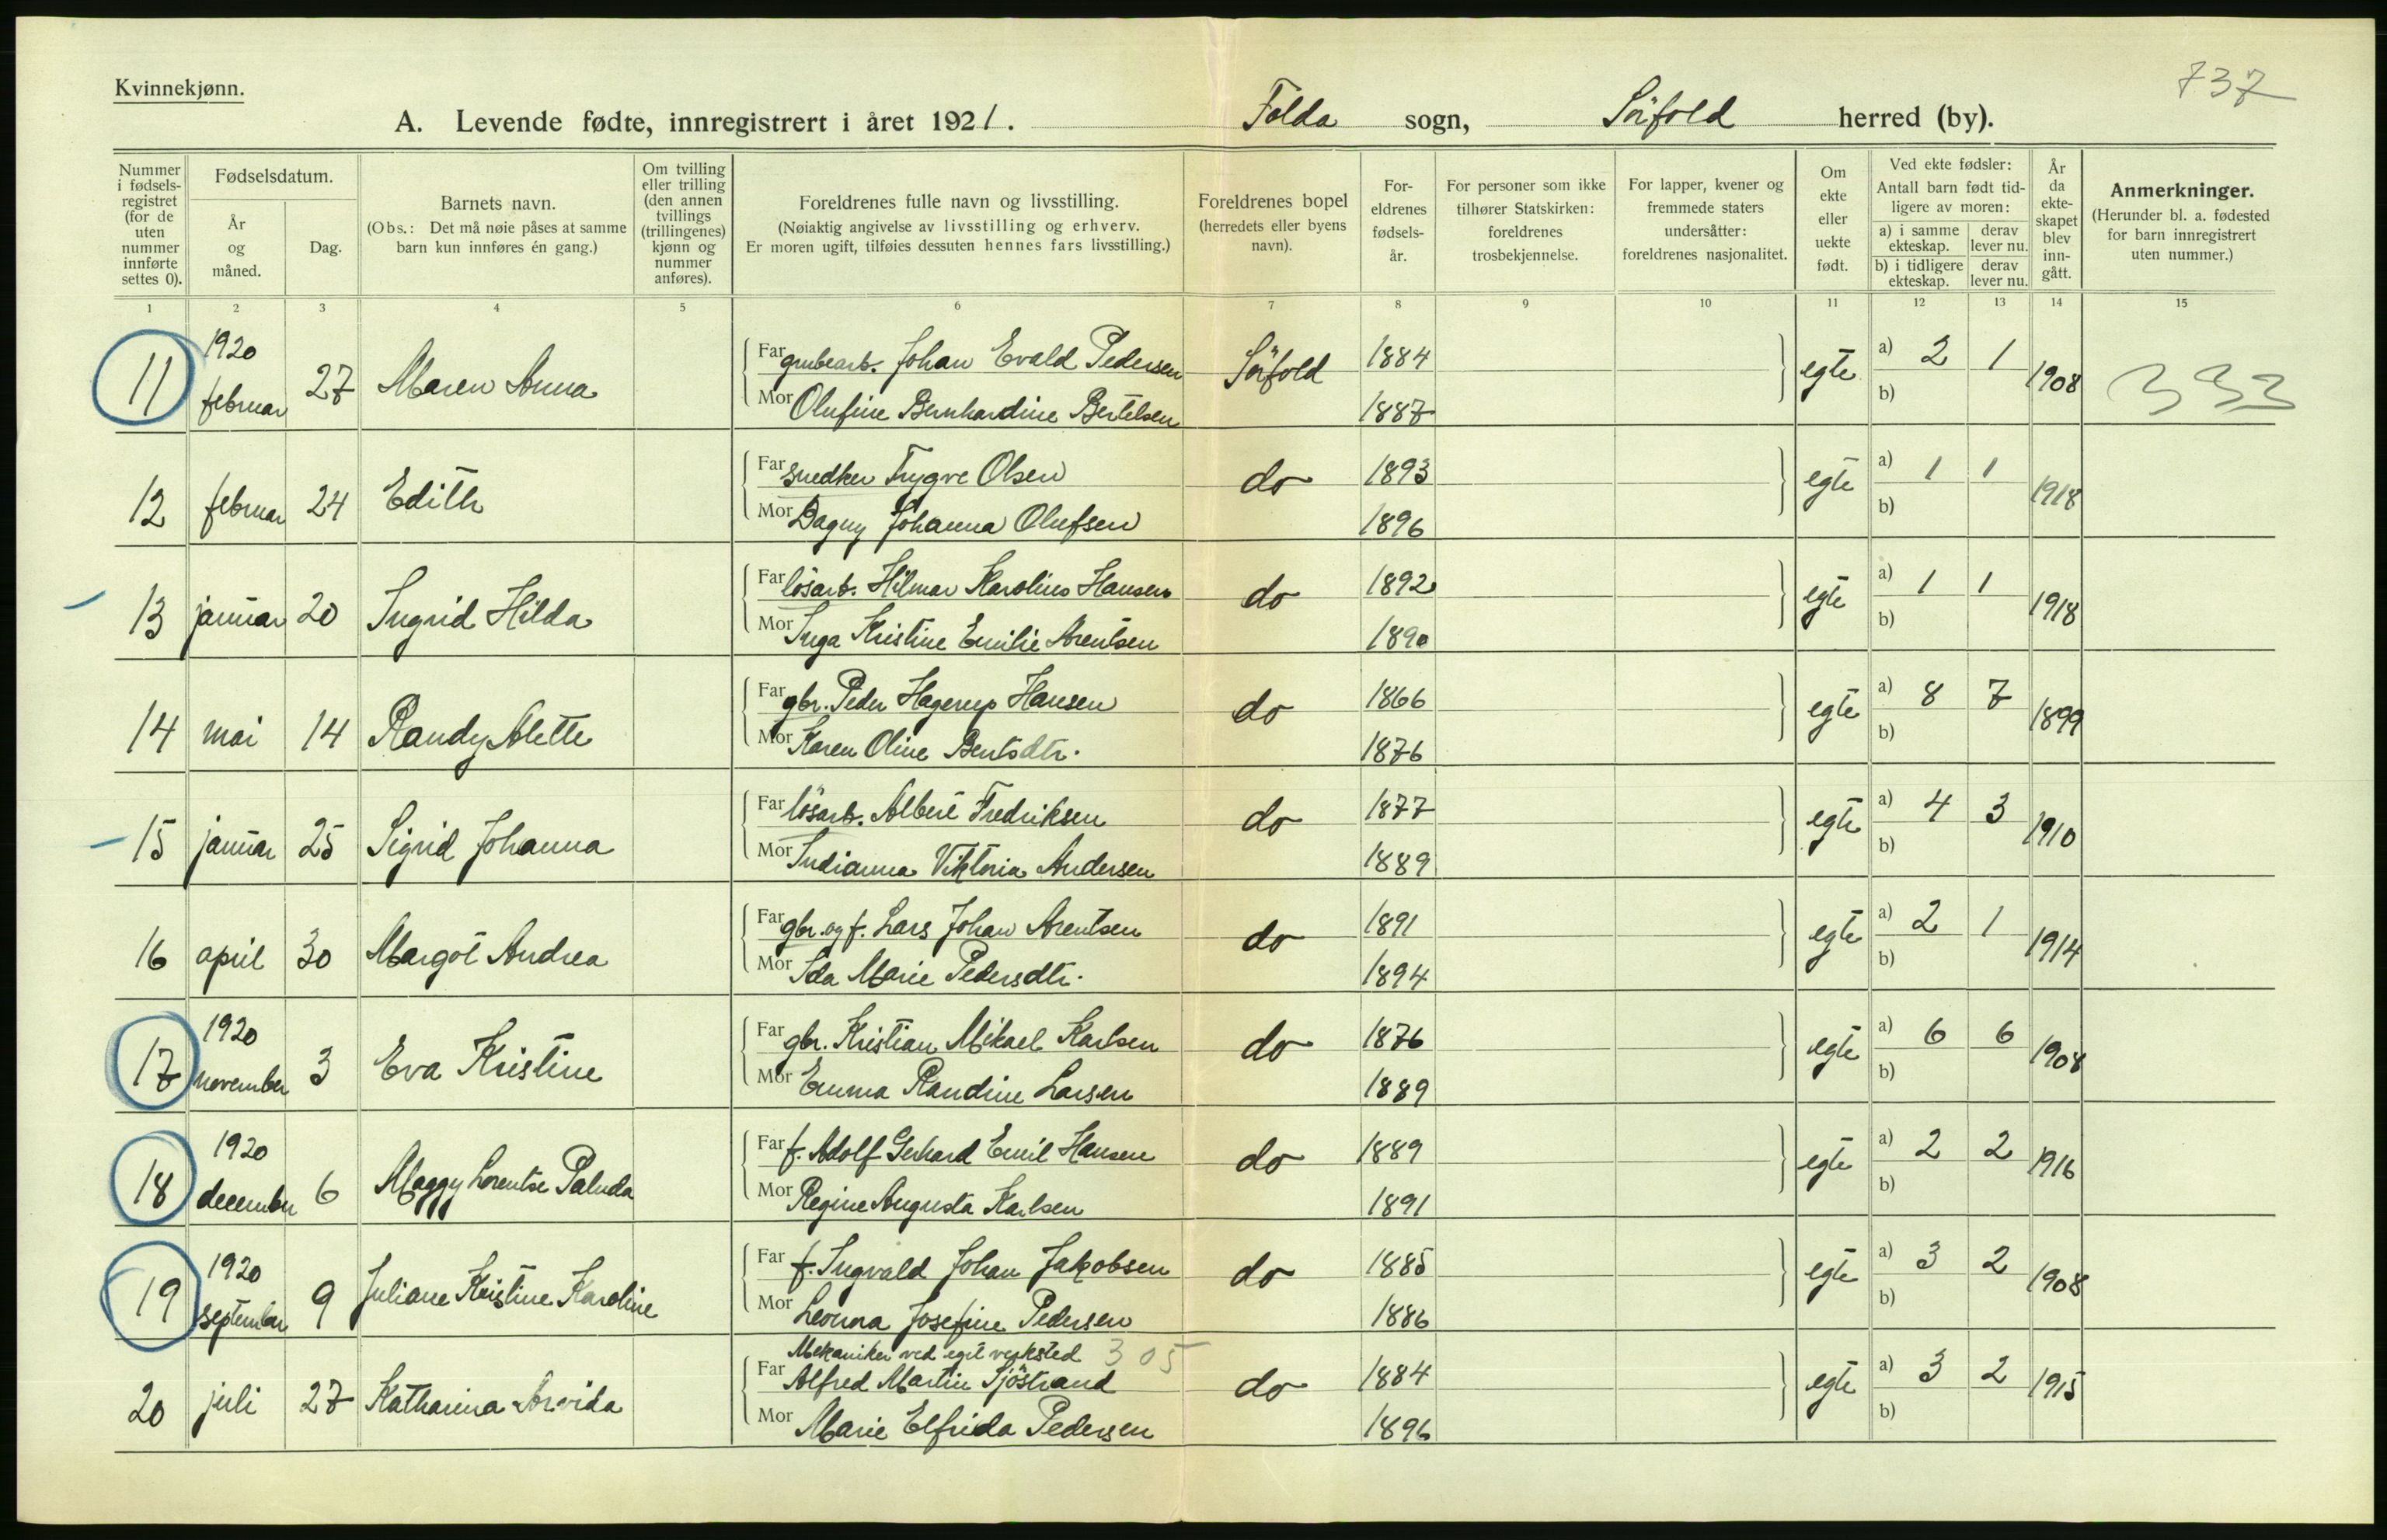 Kvinnekjønn.
737
A. Levende fødte, innregistrert i året 1921. Folda sogn, Sörfold herred (by).
Nummer i fødsels-registret (for de uten nummer innførte settes 0).
Fødselsdatum.
År og måned.
Dag.
Barnets navn.
(Obs.: Det må nøie påses at samme barn kun innføres én gang.)
Om tvilling eller trilling (den annen tvillings (trillingenes) kjønn og nummer anføres).
Foreldrenes fulle navn og livsstilling.
(Nøiaktig angivelse av livsstilling og erhverv.
Er moren ugift, tilføies dessuten hennes fars livsstilling.)
Foreldrenes bopel
(herredets eller byens navn).
For-eldrenes fødsels-år.
For personer som ikke tilhører Statskirken: foreldrenes trosbekjennelse.
For lapper, kvener og fremmede staters undersåtter: foreldrenes nasjonalitet.
Om ekte eller uekte født.
Ved ekte fødsler:
Antall barn født tid-ligere av moren:
a) i samme ekteskap. derav lever nu.
b) i tidligere ekteskap. derav lever nu.
År da ekte-skapet blev inn-gått.
Anmerkninger.
(Herunder bl. a. fødested for barn innregistrert uten nummer.)
1 2 3 4 5 6 7 8 9 10 11 12 13 14 15
11 1920 februar 27 Maren Anna Far grubearb. Johan Evald Pedersen Sörfold 1884 egte a) 2 1 1908 333
Mor Olufine Bernhardine Bertelsen 1887 b)
12 februar 24 Edith Far snedker Trygve Olsen do 1893 egte a) 1 1 1918
Mor Dagny Johanna Olufsen 1896 b)
13 januar 20 Ingrid Hilda Far lösarb. Hilmar Karolius Hansen do 1892 egte a) 1 1 1918
Mor Inga Kristine Emilie Arentsen 1890 b)
14 mai 14 Randy Alette Far gbr. Peder Hagerup Hansen do 1866 egte a) 8 7 1899
Mor Karen Oline Bentsdtr. 1876 b)
15 januar 25 Sigrid Johanna Far lösarb. Albert Fredriksen do 1877 egte a) 4 3 1910
Mor Indianna Viktoria Andersen 1889 b)
16 april 30 Margot Andrea Far gbr. og f. Lars Johan Arentsen do 1891 egte a) 2 1 1914
Mor Ida Marie Pedersdtr. 1894 b)
17 1920 november 3 Eva Kristine Far gbr. Kristian Mikael Karlsen do 1876 egte a) 6 6 1908
Mor Emma Randine Larsen 1889 b)
18 1920 december 6 Maggy Lorentse Paluda Far f. Adolf Gerhard Emil Hansen do 1889 egte a) 2 2 1916
Mor Regine Augusta Karlsen 1891 b)
19 1920 september 9 Juliane Kristine Karoline Far f. Ingvald Johan Jakobsen do 1885 egte a) 3 2 1908
Mor Leonna Josefine Pedersen 1886 b)
Mekaniker ved eget verksted 305
20 juli 27 Katharina Arvida Far Alfred Martin Sjöstrand do 1884 egte a) 3 2 1915
Mor Marie Elfrida Pedersen 1896 b)